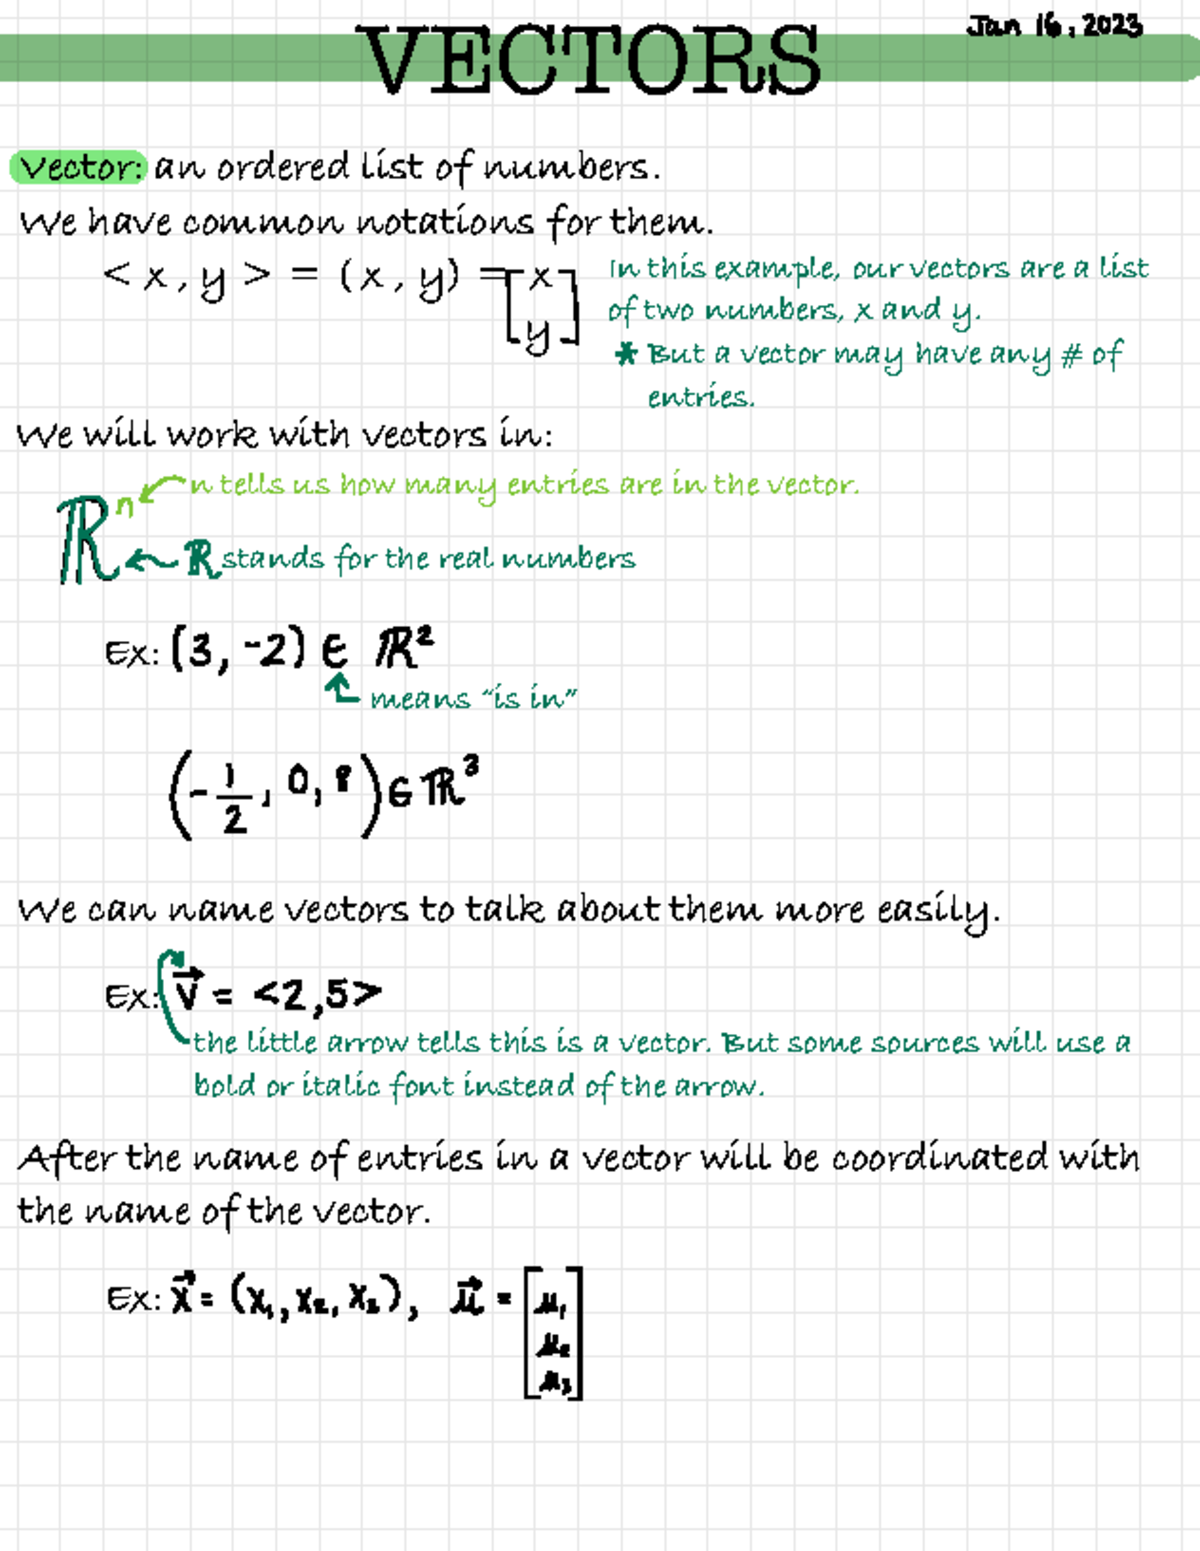 Jan 16, 2023
VECTORS
Vector: an ordered list of numbers.
We have common notations for them.
< x, y > = (x, y) = [x
y]
In this example, our vectors are a list
of two numbers, x and y.
* But a vector may have any # of
entries.
We will work with vectors in:
n tells us how many entries are in the vector.
ℝⁿ
ℝ stands for the real numbers
Ex: (3, -2) ∈ ℝ²
means "is in"
(-1/2, 0, 8) ∈ ℝ³
We can name vectors to talk about them more easily.
Ex: v⃗ = <2,5>
the little arrow tells this is a vector. But some sources will use a
bold or italic font instead of the arrow.
After the name of entries in a vector will be coordinated with
the name of the vector.
Ex: x⃗ = (x₁, x₂, x₃), u⃗ = [u₁
u₂
u₃]